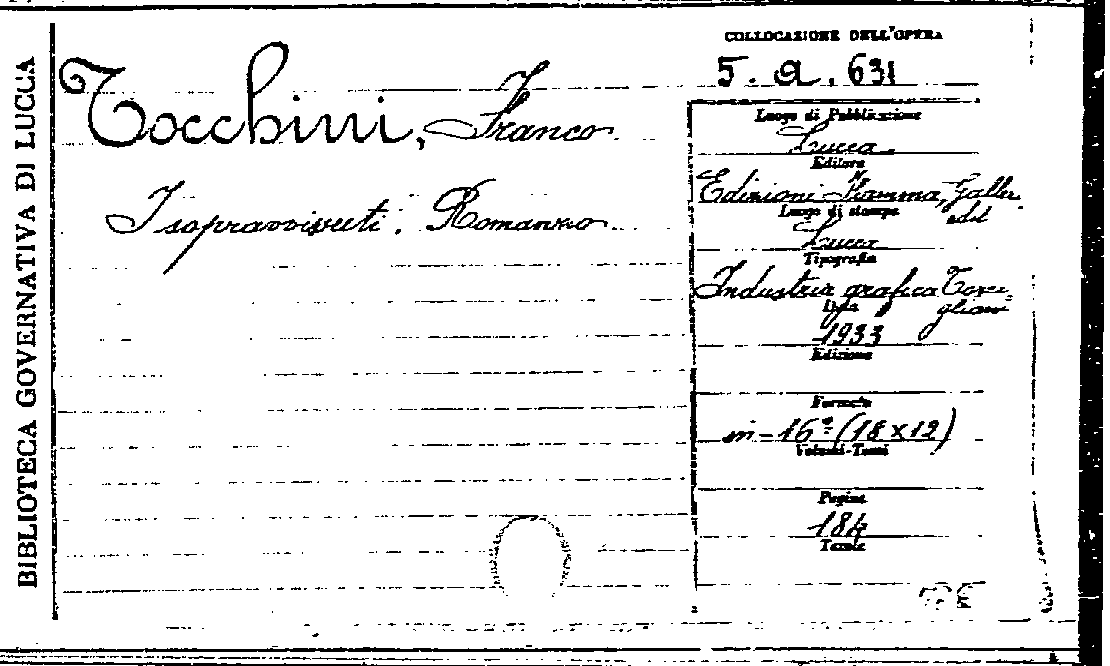 BIBLIOTECA GOVERNATIVA DI LUCCA
Tocchini, Franco
I sopravvissuti. Romanzo
COLLOCAZIONE DELL'OPERA
5. a. 631
Luogo di Pubblicazione
Lucca
Editore
Edizioni Fiamma,
Luogo di stampa
Lucca
Tipografia
Industria grafica
Data
1933
Edizione
Formato
in-16º (18x12)
Volumi-Tomi
Pagine
184
Tavole